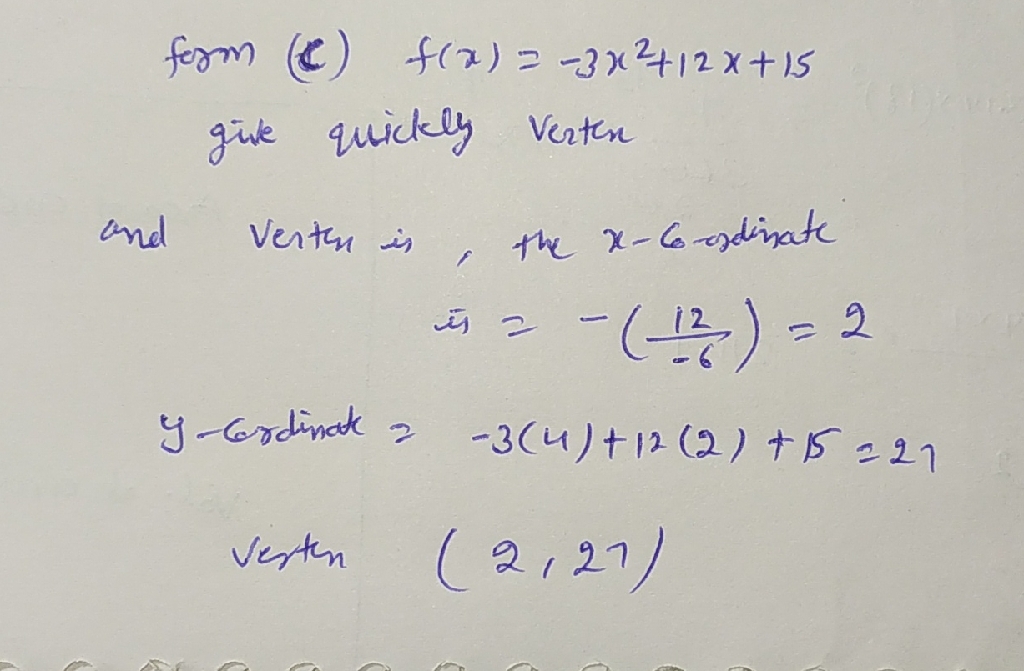 form (C) f(x) = -3x²+12x+15
give quickly Vertex
and Vertex is, the x-Co-ordinate
is = -(12/-6) = 2
y-Cordinate = -3(4)+12(2)+15 = 27
Vertex (2,27)